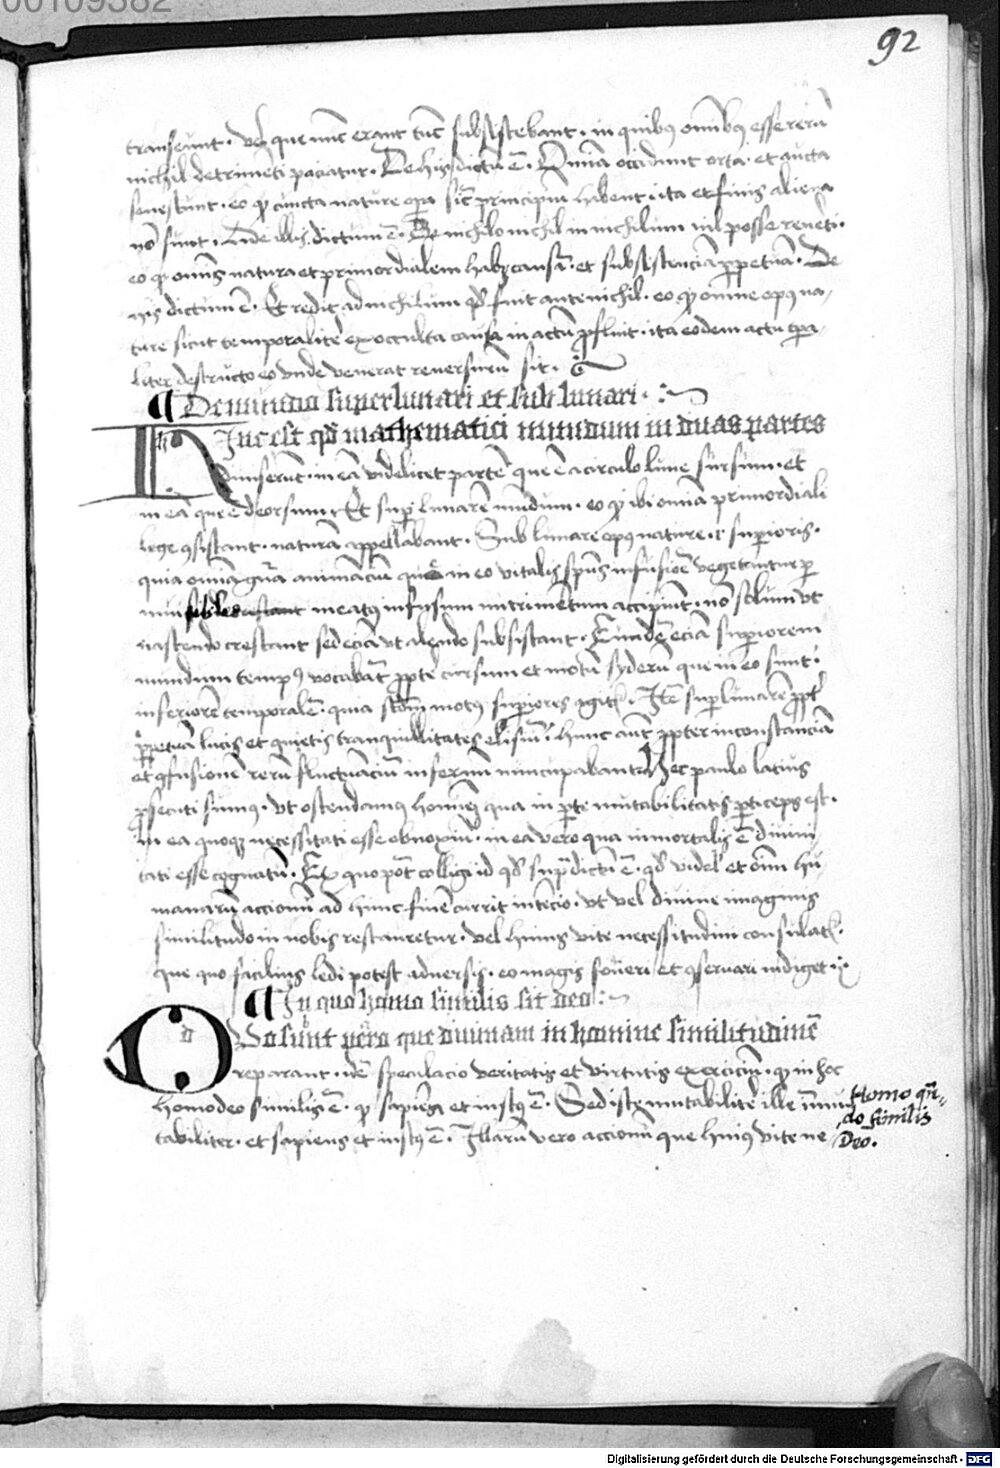 00109382
92
transeunt. vel que nunc erant tunc subsistebant. in quibus omnibus esse rerum
nichil detrimenti paciatur. De hijs dictum est. Omnia occidunt orta. et aucta
senescunt. eo quod cuncta nature opera sicut principium habent. ita et finis aliena
non sunt. De illis dictum est. De nichilo nichil in nichilum nil posse reverti.
eo quod omnis natura et primordialem habet causam. et subsistenciam perpetuam. De
hijs dictum est. Et redit ad nichilum quod fuit ante nichil. eo quod omne opus na-
ture sicut temporaliter ex occulta causa in actum profluit. ita eodem actu tpa-
liter destructo eo unde venerat reversurum sit.
¶ De mundo superlunari et sublunari.
Hinc est quod mathematici mundum in duas partes
diviserunt. in eam videlicet partem que est a circulo lune sursum. et
in eam que est deorsum. Et superlunarem mundum. eo quod ibi omnia primordiali
lege consistant. naturam appellabant. Sublunarem opus nature .i. superioris.
quia omnia genera animancium que in eo vitalis spiritus infusione vegetantur per
invisibiles meatus infusum nutrimentum accipiunt. non solum ut
nascendo crescant sed eciam ut alendo subsistant. Eundem eciam superiorem
mundum tempus vocabant propter cursum et motum syderum que in eo sunt.
inferiorem temporalem. quia secundum motus superiores agitur. Item superlunarem propter
perpetuam lucis et quietis tranquillitatem elisium. hunc autem propter inconstanciam
et confusionem rerum fluctuancium infernum nuncupabant. Hec paulo latius
prosecuti sumus. ut ostendamus hominem qua in parte mutabilitatis particeps est.
in ea quoque necessitati esse obnoxium. in ea vero qua inmortalis est divini
tati esse cognatum. Ex quo potest colligi id quod supradictum est. quod videlicet omnium hu-
manarum accionum ad hunc finem currit intencio. ut vel divine imaginis
similitudo in nobis restauretur. vel huius vite necessitudini consulatur.
que quo facilius ledi potest adversis. eo magis foveri et conservari indiget.
¶ In quo homo similis sit deo
Duo sunt vero que divinam in homine similitudinem
reparant. idem speculacio veritatis et virtutis exercicium. quod in hoc
homo deo similis est. quod sapiens et iustus est. Sed iste mutabiliter ille inmu-
tabiliter. et sapiens et iustus est. Illarum vero accionum que huius vite ne
Homo quando
similis
Deo.
Digitalisierung gefördert durch die Deutsche Forschungsgemeinschaft - DFG